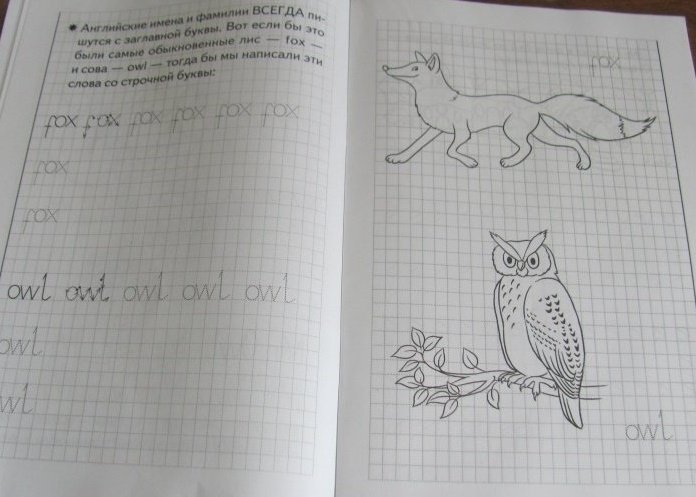 ✱ Английские имена и фамилии ВСЕГДА пи-
шутся с заглавной буквы. Вот если бы это
были самые обыкновенные лис — fox —
и сова — owl — тогда бы мы написали эти
слова со строчной буквы:
fox fox fox fox fox fox
fox
fox
owl owl owl owl owl
owl
owl
fox
owl